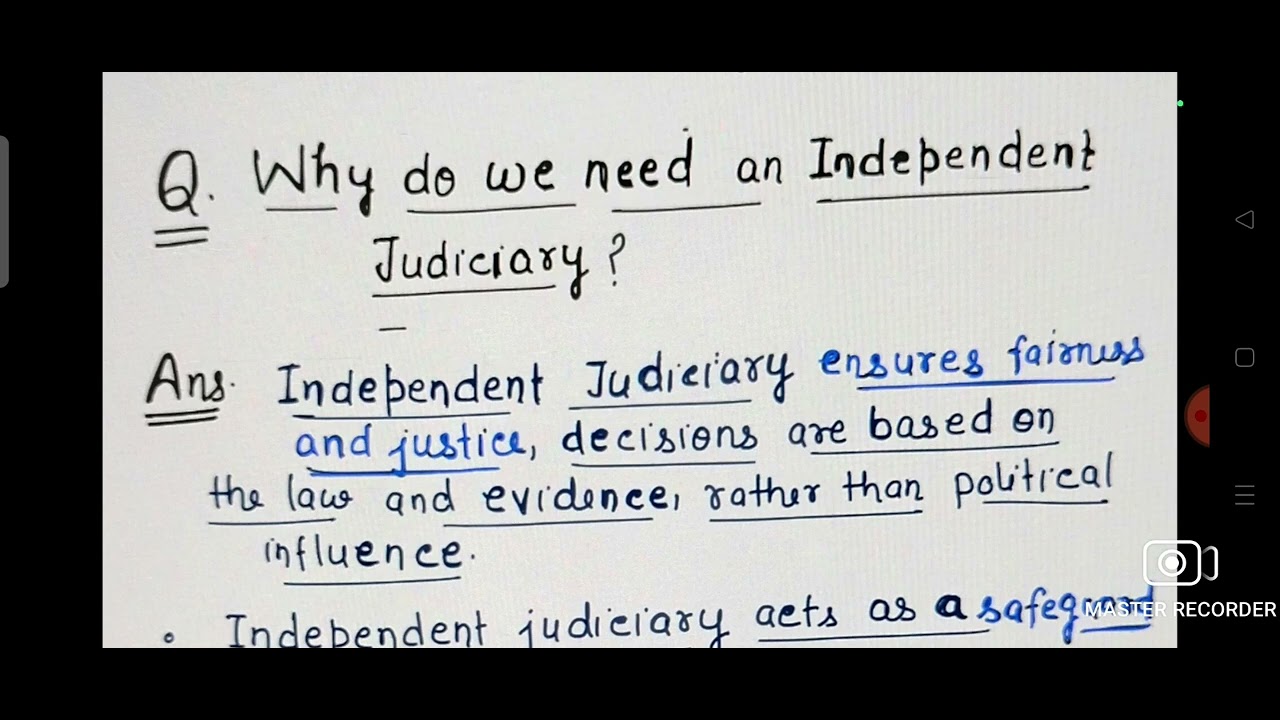 Q. Why do we need an Independent
Judiciary?
Ans. Independent Judiciary ensures fairness
and justice, decisions are based on
the law and evidence, rather than political
influence.
• Independent judiciary acts as a safeguard
MASTER RECORDER